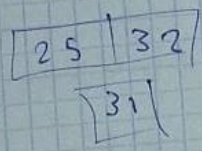 25 32
31